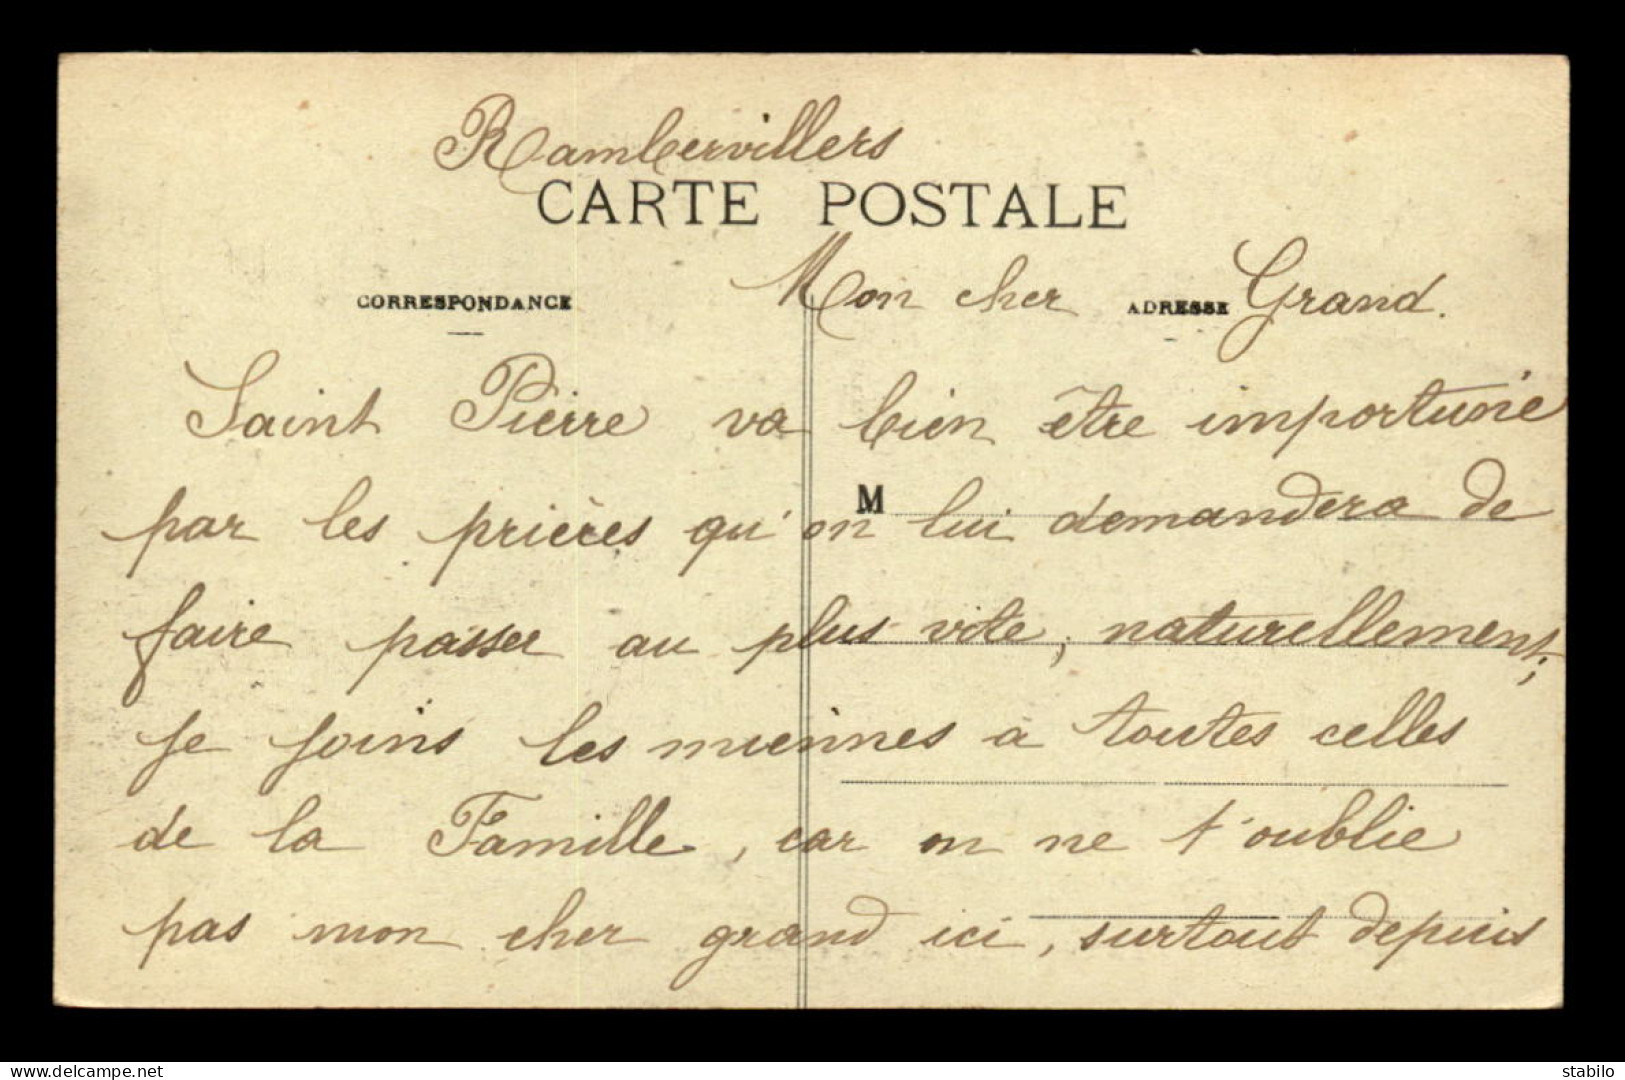 Rambervillers
CARTE POSTALE
CORRESPONDANCE
ADRESSE
Mon cher Grand.
Saint Pierre va bien être importuné
par les prières qu'on lui demandera de
M
faire passer au plus vite, naturellement,
je joins les miennes a toutes celles
de la Famille, car on ne t'oublie
pas mon cher grand ici, surtout depuis
www.delcampe.net
stabilo